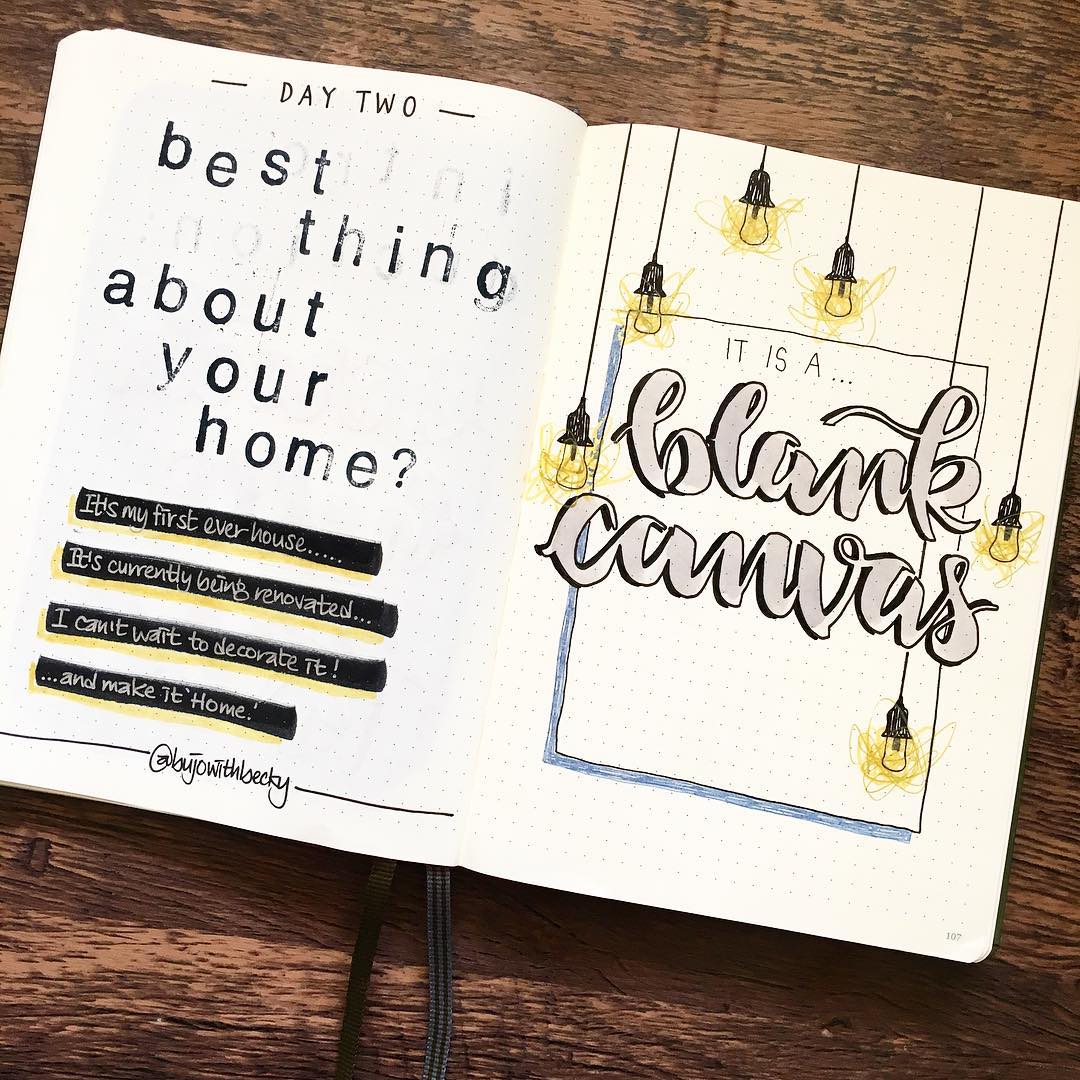 — DAY TWO —
best
thing
about
your
home?
It's my first ever house.....
It's currently being renovated...
I can't wait to decorate it!
...and make it 'Home.'
@bujowithbecky
IT IS A...
blank
canvas
107